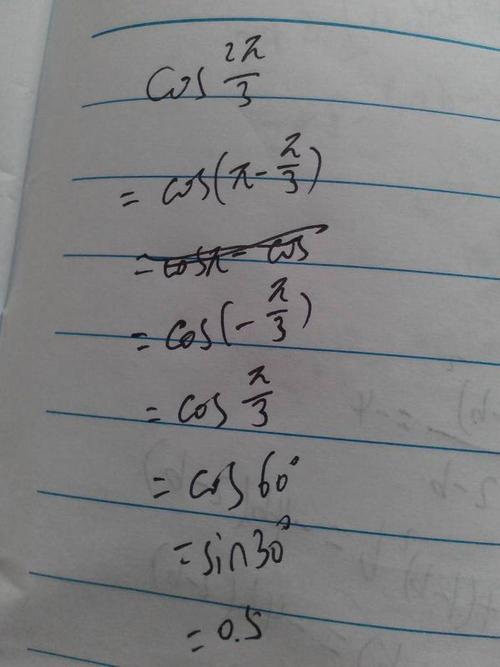 cos 2π/3
= cos(π - π/3)
= cosπ - cos
= cos(- π/3)
= cos π/3
= cos 60°
= sin 30°
= 0.5